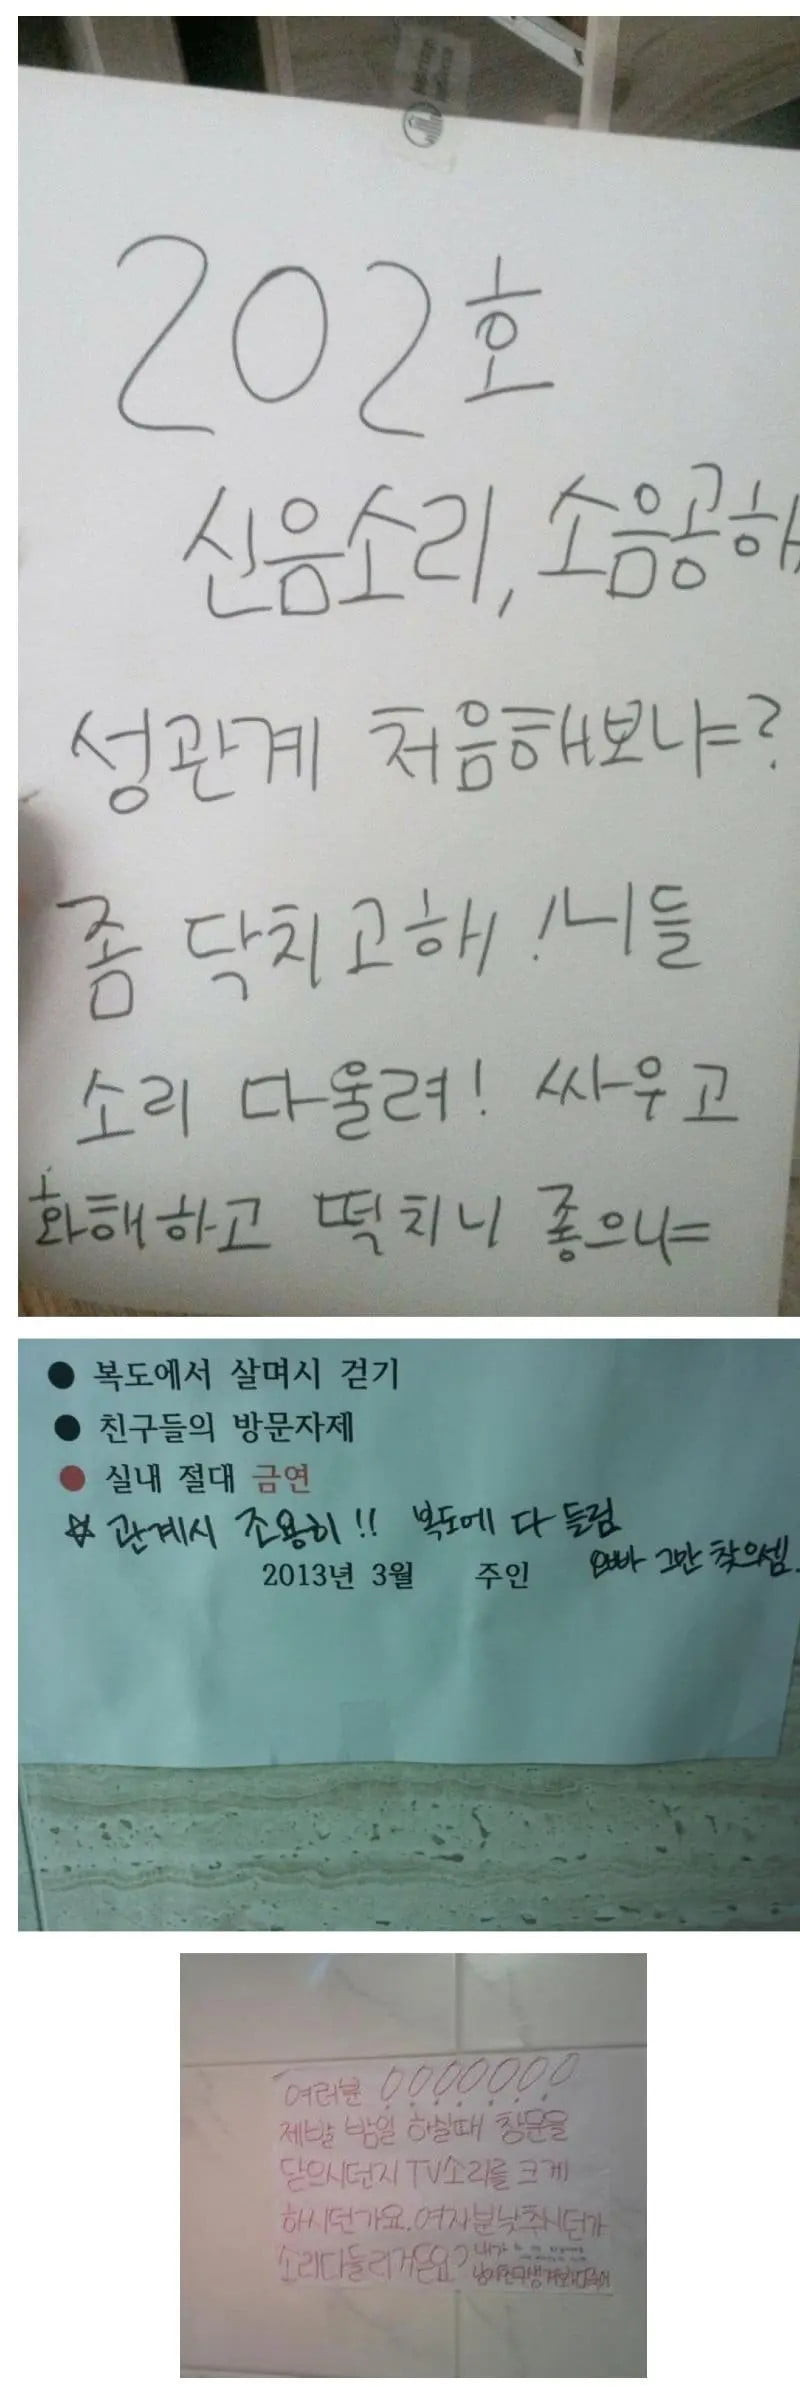 202호
신음소리, 소음공해
성관계 처음해보냐=?
좀 닥치고해! 니들
소리 다울려! 싸우고
화해하고 떡치니 좋으냐=
● 복도에서 살며시 걷기
● 친구들의 방문자제
● 실내 절대 금연
☆ 관계시 조용히!! 복도에 다 들림
오빠 그만 찾으셈.
2013년 3월 주인
여러분 !!!!!!!
제발 밤일 하실때 창문을
닫으시던지 TV소리를 크게
하시던가요. 여자분낮추시던가
소리다들리거든요? 내가